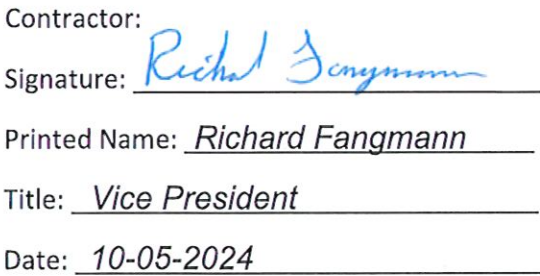 Contractor:
Signature: Richard Fangmann
Printed Name: Richard Fangmann
Title: Vice President
Date: 10-05-2024